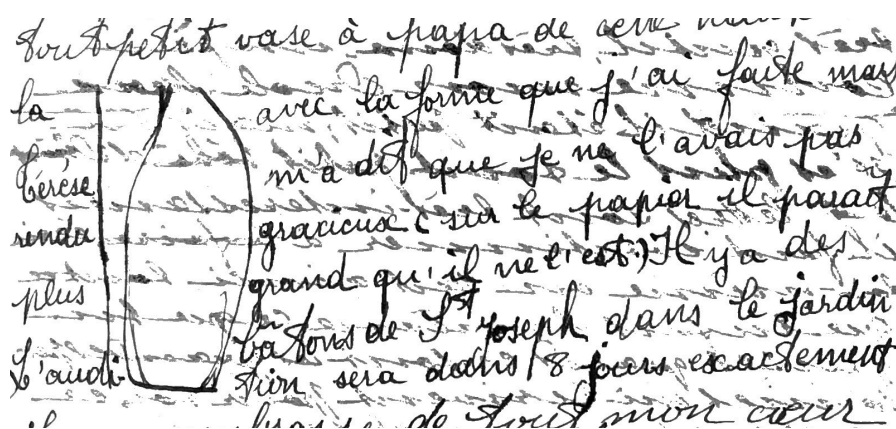 tout petit vase à papa de cette
la avec la forme que j'ai faite mas
térése m'a dit que je ne l'avais pas
rendu gracieux (sur le papier il parait
plus grand qu'il ne l'est.) Il y a des
bâtons de St Joseph dans le jardin
L'audi- tion sera dans 8 jours exactement
de tout mon cœur